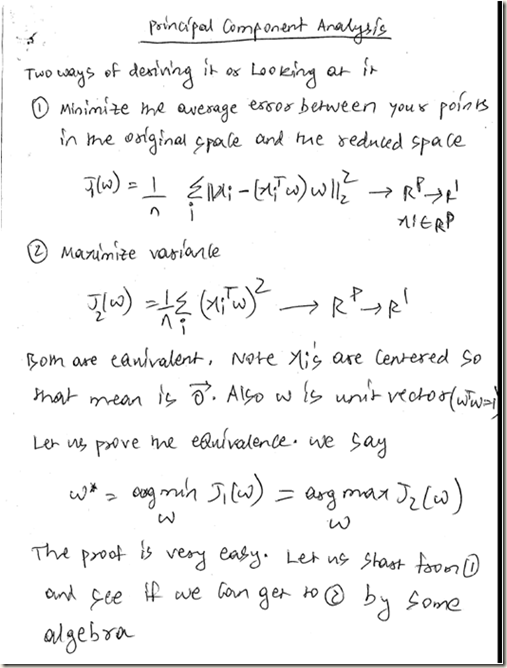 Principal Component Analysis
Two ways of deriving it or Looking at it
① Minimize the average error between your points
in the original space and the reduced space
J₁(w) = 1/n Σᵢ ||xᵢ - (xᵢᵀw) w||₂² → Rᴾ → R¹
xi ∈ Rᴾ
② Maximize variance
J₂(w) = 1/n Σᵢ (xᵢᵀw)² → Rᴾ → R¹
Both are equivalent. Note xi's are centered so
that mean is 0⃗. Also w is unit vector (wᵀw=1)
Let us prove the equivalence. we say
w* = argmin J₁(w) = argmax J₂(w)
w w
The proof is very easy. Let us start from ①
and see if we can get to ② by some
algebra